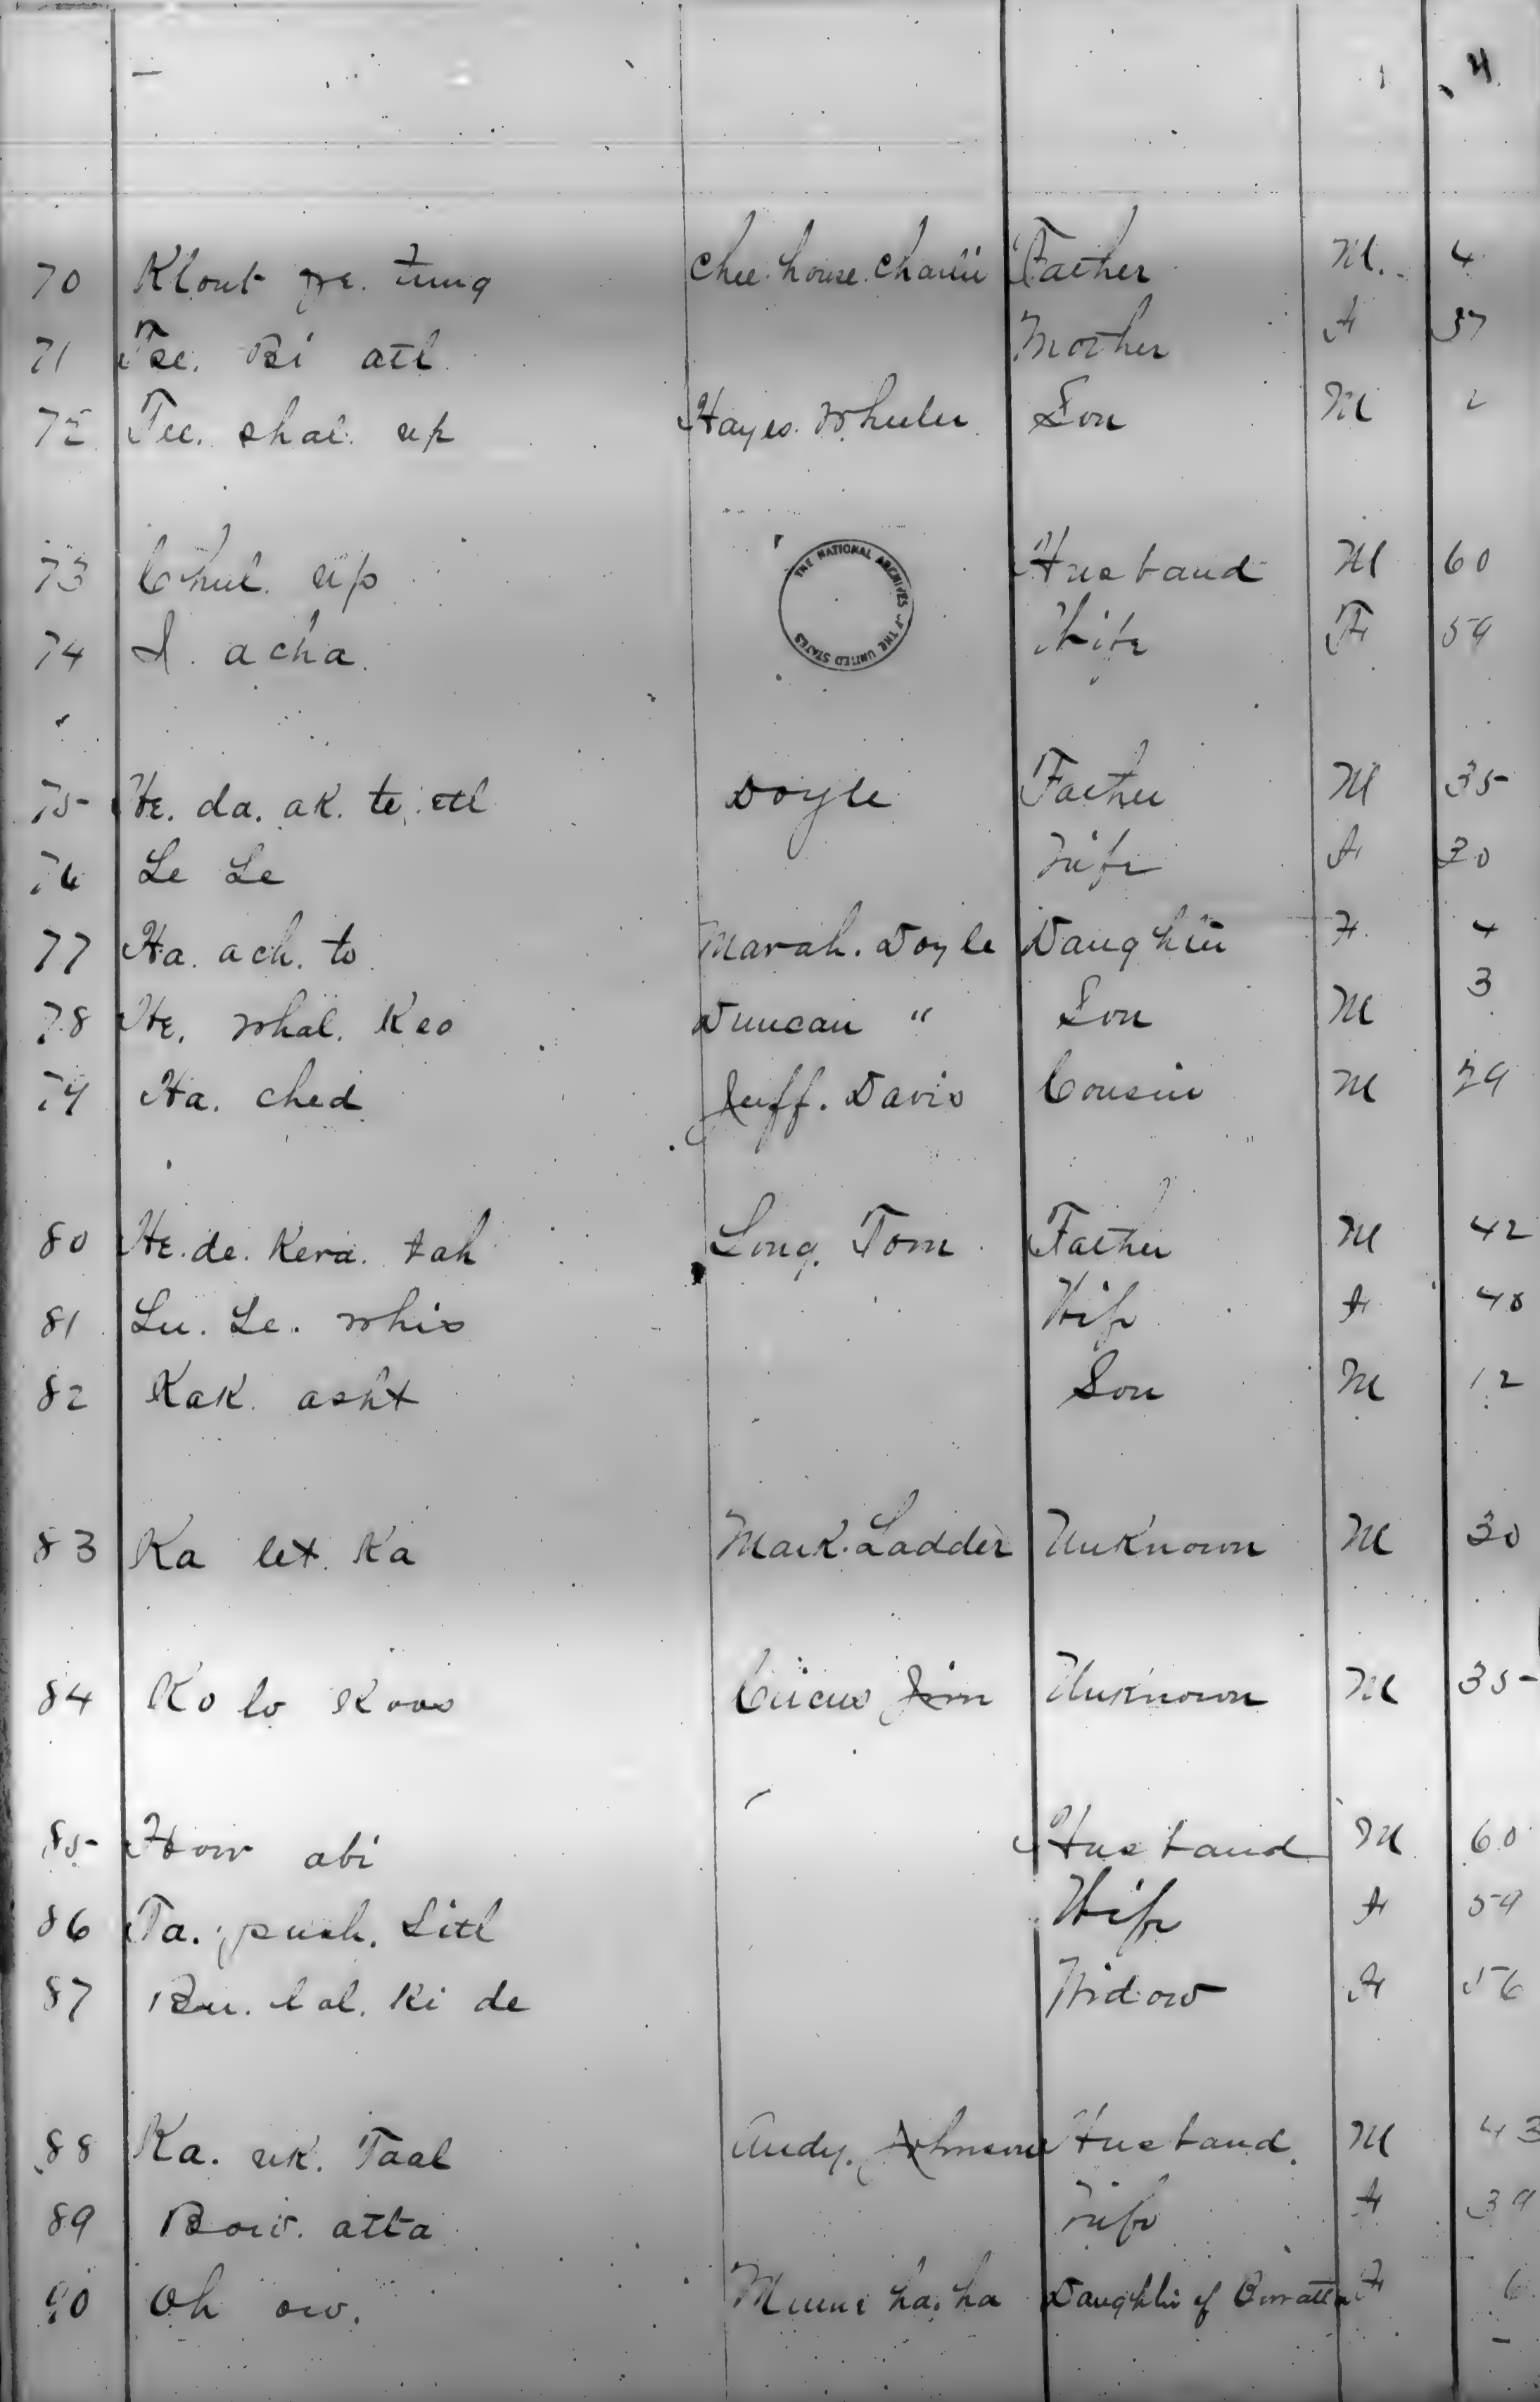 4
70 Klout ye. tung chee. house. charlie Father M. 4
71 Tse. Bi atl Mother F 37
72 Tee. shal. up Hayes. Wheeler Son M 2
73 Chul. up Husband M 60
THE NATIONAL ARCHIVES OF THE UNITED STATES
74 I. acha. Wife F 59
75 He. da. ak. te. etl Doyle Father M 35
76 Le Le Wife F 30
77 Ha. ach. to Marah. Doyle Daughter F. 4
78 He. whal. Keo Duncan " Son M 3
79 Ha. ched Jeff. Davis Cousin M 29
80 He. de. Kera. tah Long. Tom Father M 42
81 Lu. Le. whis Wife F 40
82 Kak. asht Son M 12
83 Ka let. Ka Mark. Ladder Unknown M 30
84 Ko lo Koos Circus Jim Unknown M 35
85 How abi Husband M 60
86 Ta. push. Sitl Wife F 59
87 Bu. lal. Ki de Widow F 56
88 Ka. uk. Taal Andy. Johnson Husband. M 43
89 Bow. atta Wife F 39
90 Oh ow. Minne ha. ha Daughter of Bowatta F 6